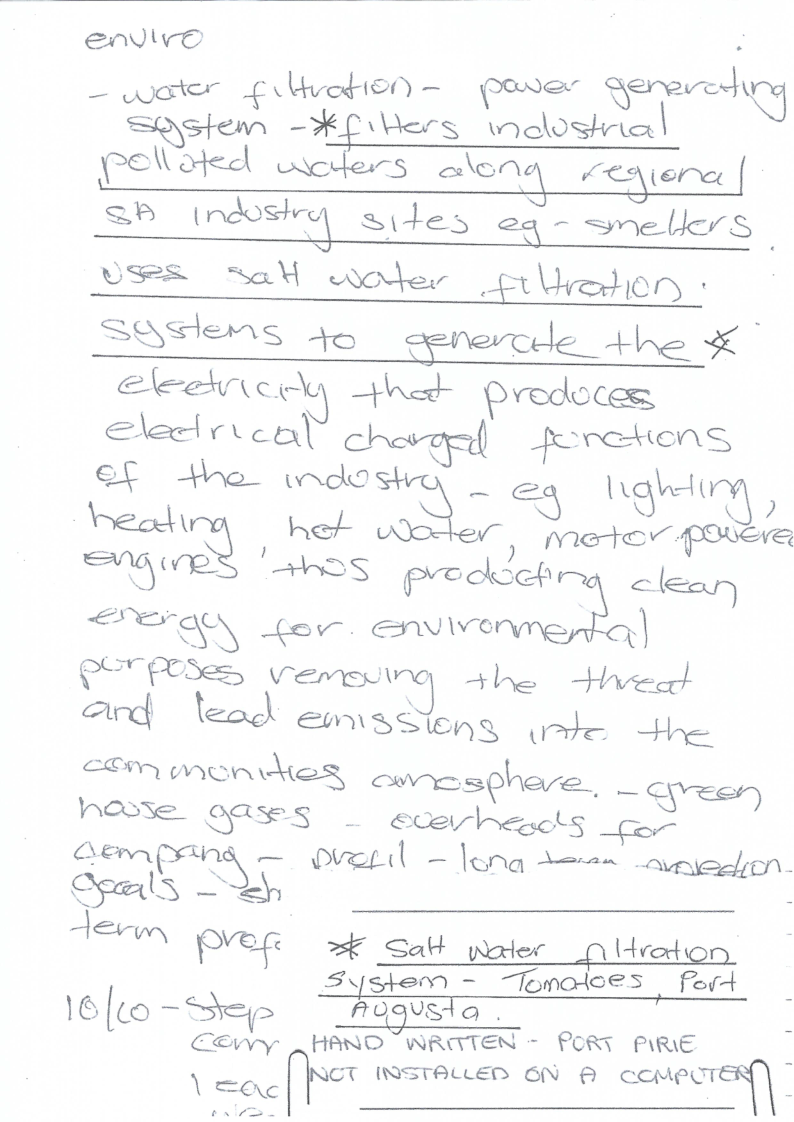 enviro
- water filtration - power generating
system - *filters industrial
polluted waters along regional
SA industry sites eg - smelters
uses salt water filtration.
systems to generate the *
electricity that produces
electrical charged functions
of the industry - eg lighting,
heating, hot water, motor powere
engines, thus producting clean
energy for environmental
purposes removing the threat
and lead emissions into the
communities amosphere. - green
house gases - overheads for
company - profil - long term
goals - sh
term prof
* Salt Water filtration
System - Tomatoes, Port
Augusta.
10/10 - Step
com
HAND WRITTEN - PORT PIRIE
NOT INSTALLED ON A COMPUTER